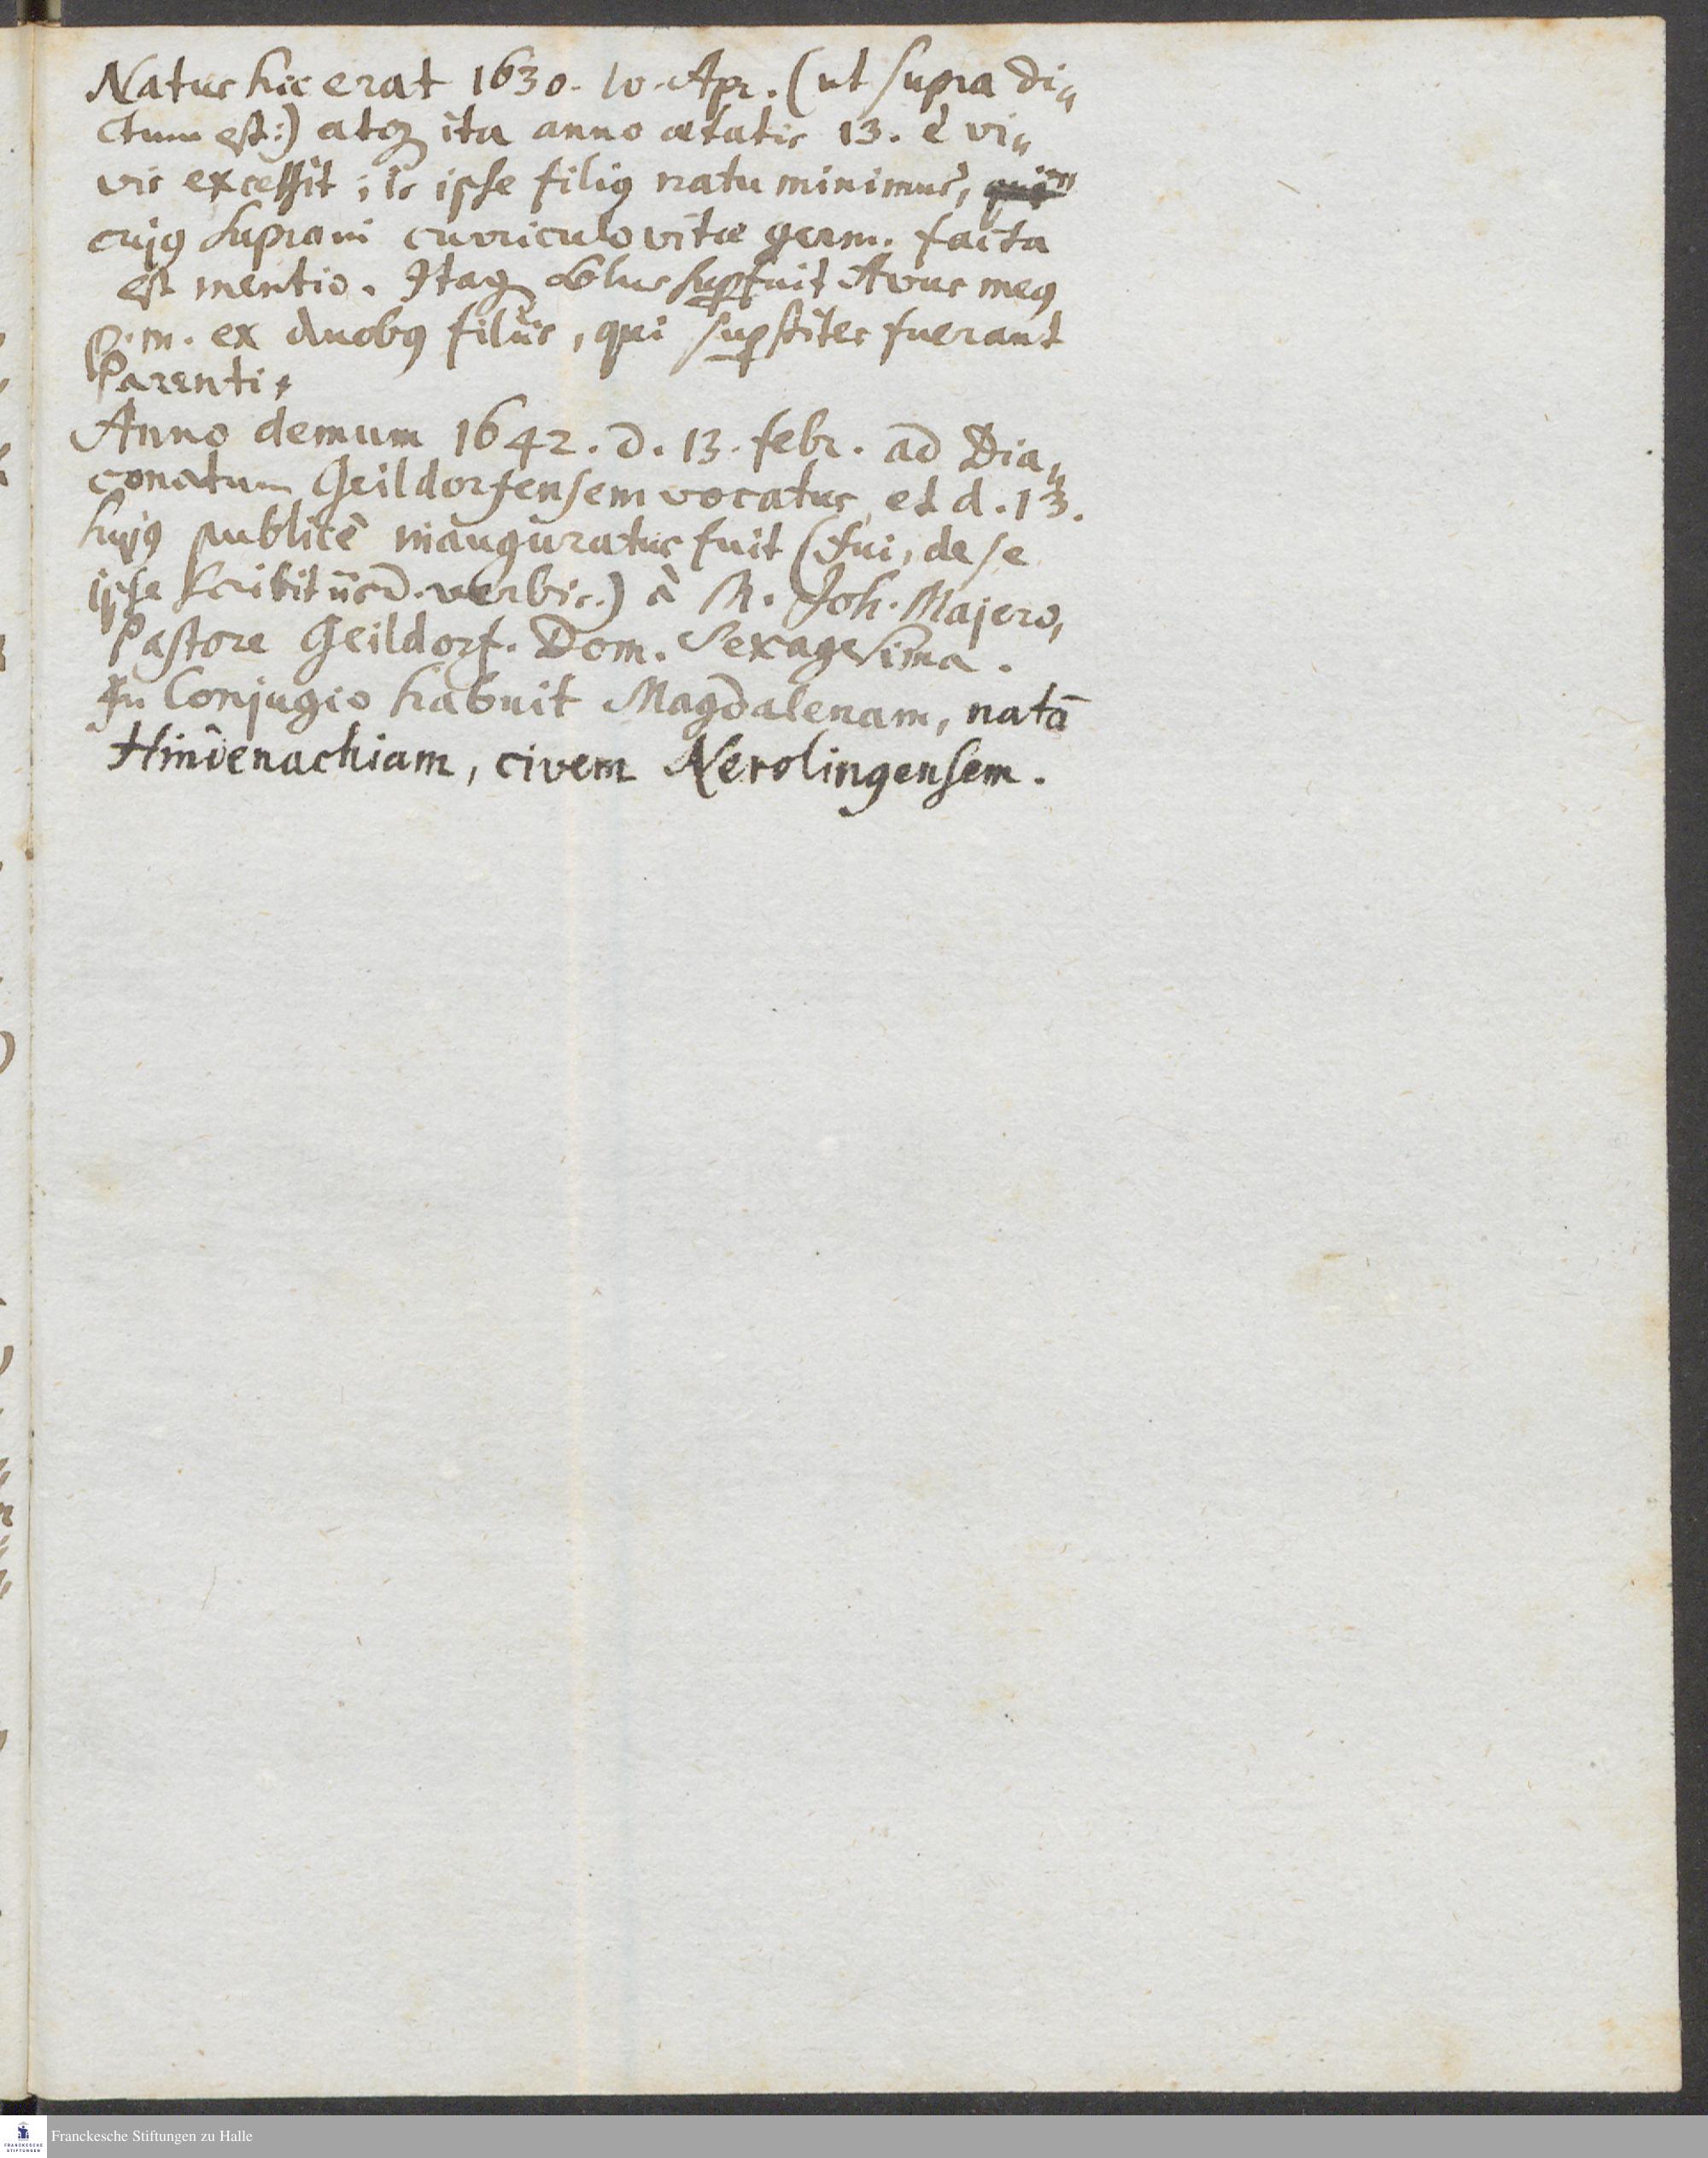 Natus hic erat 1630. 10. Apr. (ut supra di„
ctum est:) atq; ita anno ætatis 13. è vi„
vis excessit; is ipse filiꝰ natu minimus,
cujꝰ supra in curriculo vitæ germ. facta
est mentio. Itaq; solus supfuit Avus meꝰ
p. m. ex duobꝰ filiis, qui supstites fuerant
Parenti.
Anno demum 1642. d. 13. febr. ad Dia„
conatum Geildorfensem vocatus, et d. 13.
hujꝰ publicè inauguratus fuit (fui, de se
ipse scribit iisd. verbis.) à M. Joh. Majero,
Pastore Geildorf. Dom. Sexagesima.
In Conjugio habuit Magdalenam, natā
Hindenachiam, civem Nerolingensem.
Franckesche Stiftungen zu Halle